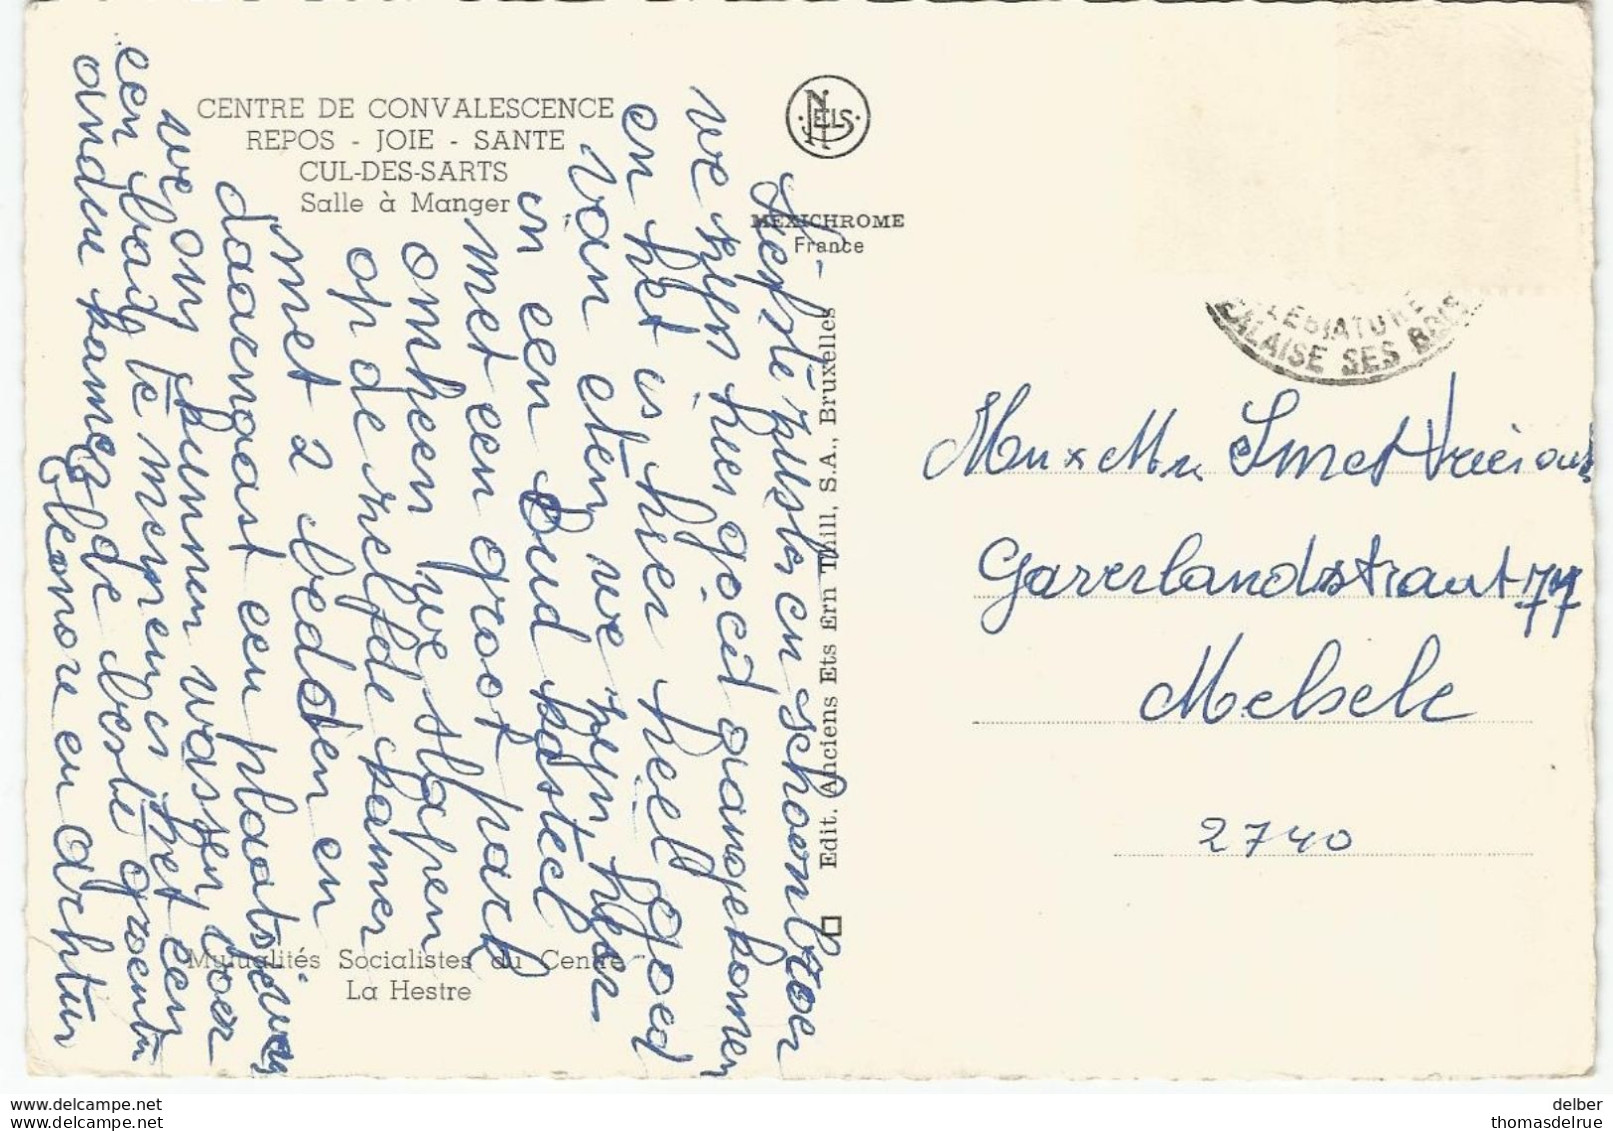 CENTRE DE CONVALESCENCE
REPOS - JOIE - SANTE
CUL-DES-SARTS
Salle à Manger
NELS
MEXICHROME
France
Edit. Anciens Ets Ern Thill, S.A., Bruxelles
Mutualités Socialistes du Centre
La Hestre
Liefste zuster en schoonbroer
we zijn hier goed aangekomen
en het is hier heel goed
van eten we zijn hier
in een oud kasteel
met een groot park
omheen we slapen
op de zelfde kamer
met 2 bedden en
daarnaast een plaats waar
we ons kunnen wassen voor
een baid te nemen is het een
andere kamer de beste groeten
Eleonore en Arthur
LEGIATURE
FALAISE SES BOIS
Mr x Mw Smet
Gaverlandstraat 77
Melsele
2740
delcampe.net
delber
thomasdelrue